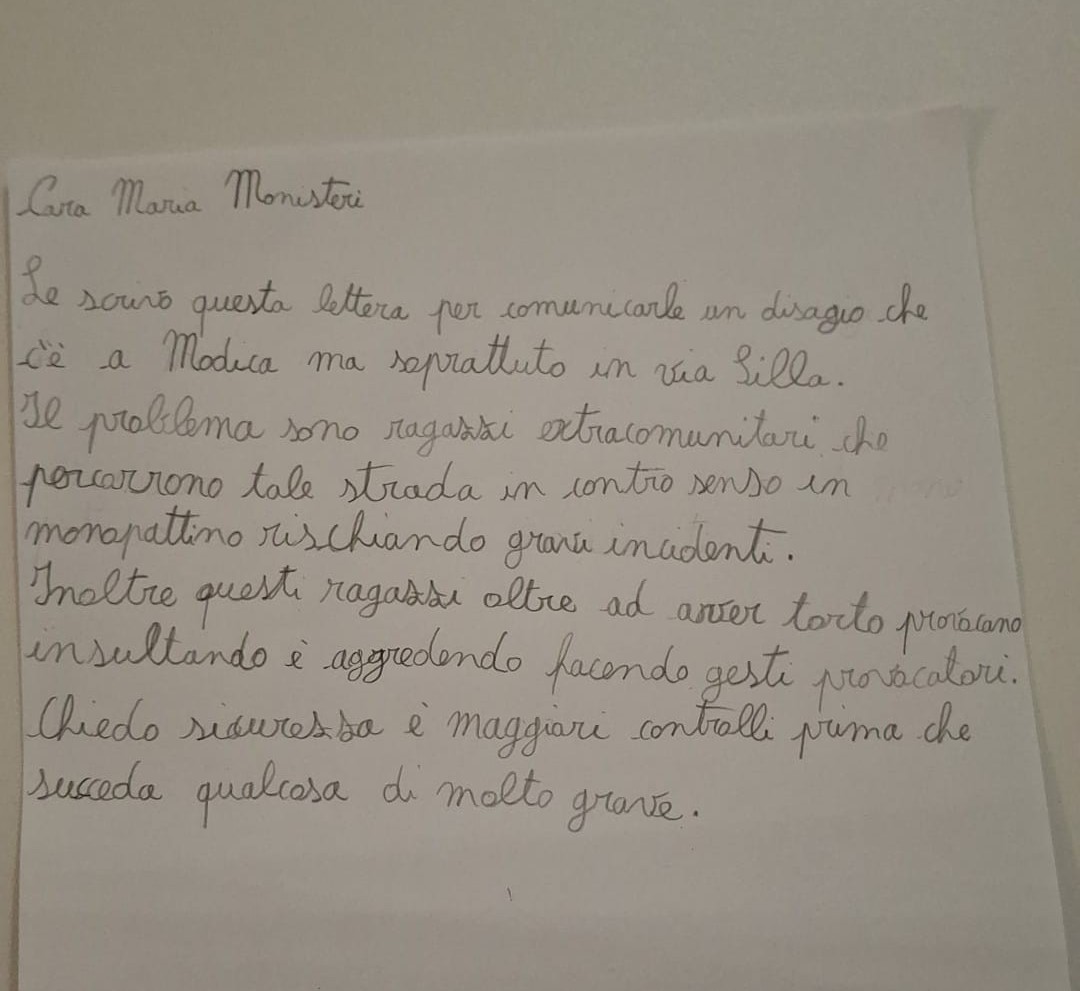 Cara Maria Monisteri
Le scrivo questa lettera per comunicarle un disagio che
c'è a Modica ma soprattuto in via Silla.
Il problema sono ragazzi extracomunitari che
percorrono tale strada in contro senso in
monopattino rischiando gravi incidenti.
Inoltre questi ragazzi oltre ad aver torto provocano
insultando è aggredendo facendo gesti provocatori.
Chiedo sicurezza è maggiori controlli prima che
succeda qualcosa di molto grave.